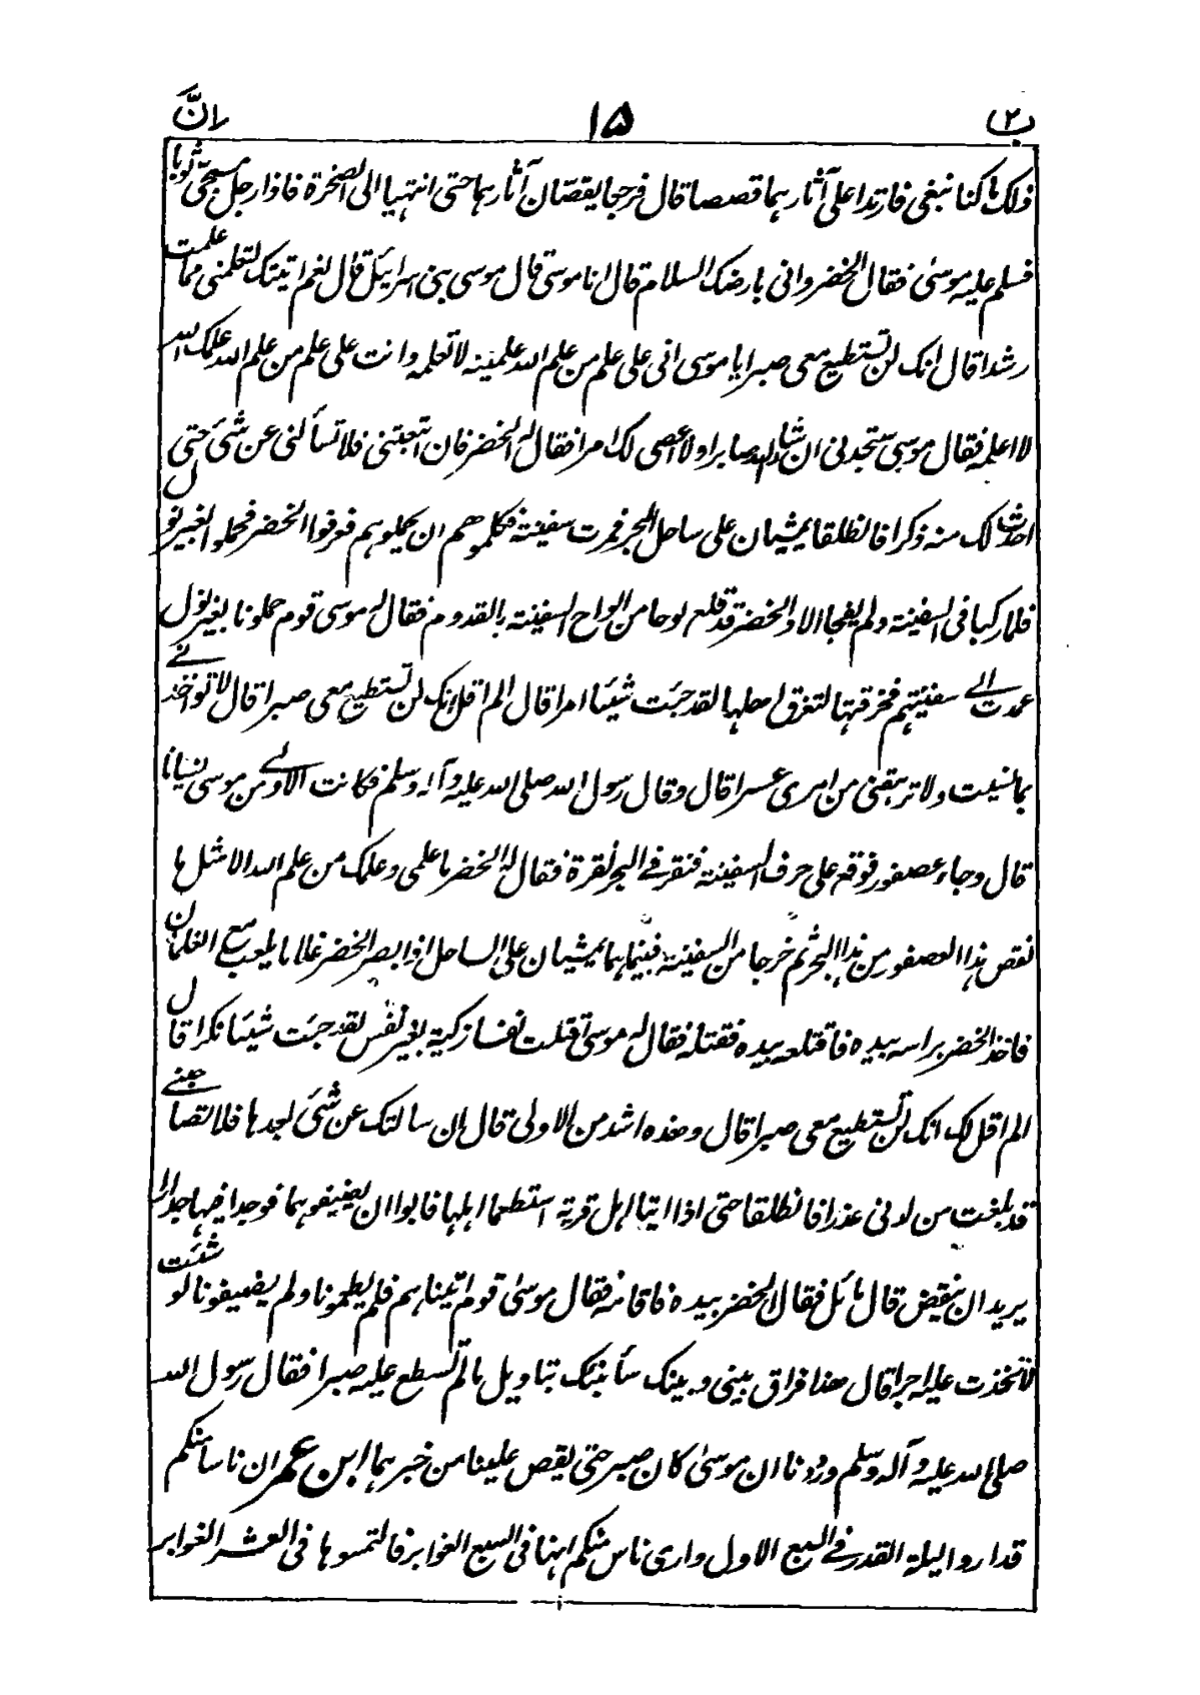 ب(٢) ١٥ انَّ
ذلك ما كنا نبغى فارتدا على آثارهما قصصا قال فرجعا يقصّان آثارهما حتى انتهيا الى الصخرة فاذا رجل مسجىّ ثوبا
فسلم عليه موسىٰ فقال الخضر وانى بارضك السلام قال انا موسى قال موسى بنى اسرائيل قال نعم اتيتك لتعلمنى مما علمت
رشدا قال انك لن تستطيع معى صبرا يا موسى انى على علم من علم الله علمنيه لا تعلمه وانت على علم من علم الله علمك الله
لا اعلمه فقال موسى ستجدنى ان شاء الله صابرا ولا اعصى لك امرا فقال له الخضر فان اتبعتنى فلا تسألنى عن شئ حتى
احدث لك منه ذكرا فانطلقا يمشيان على ساحل البحر فمرت سفينة فكلموهم ان يحملوهم فعرفوا الخضر فحملوا بغير نول
فلما ركبا فى السفينة ولم يفجا الا والخضر قد قلع لوحا من الواح السفينة بالقدوم فقال له موسى قوم حملونا بغير نول
عمدت الى سفينتهم فخرقتها لتغرق اهلها لقد جئت شيئا امرا قال الم اقل انك لن تستطيع معى صبرا قال لا تواخذنى
بما نسيت ولا ترهقنى من امرى عسرا قال وقال رسول الله صلى الله عليه وآله وسلم فكانت الاولى من موسى نسيانا
قال وجاء عصفور فوقع على حرف السفينة فنقر فى البحر نقرة فقال له الخضر ما علمى وعلمك من علم الله الا مثل ما
نقص هذا العصفور من هذا البحر ثم خرجا من السفينة فبينما هما يمشيان على الساحل اذا بصر الخضر غلاما يلعب مع الغلمان
فاخذ الخضر براسه بيده فاقتلعه بيده فقتله فقال له موسى قتلت نفسا زكية بغير نفس لقد جئت شيئا نكرا قال
الم اقل لك انك لن تستطيع معى صبرا قال وهذه اشد من الاولى قال ان سالتك عن شئ بعدها فلا تصاحبنى
قد بلغت من لدنى عذرا فانطلقا حتى اذا اتيا اهل قرية استطعما اهلها فابوا ان يضيفوهما فوجدا فيها جدارا
يريد ان ينقض قال مائل فقال الخضر بيده فاقامه فقال موسىٰ قوم اتيناهم فلم يطعمونا ولم يضيفونا لو شئت
لاتخذت عليه اجرا قال هذا فراق بينى وبينك سأنبئك بتاويل ما لم تسطع عليه صبرا فقال رسول الله
صلى الله عليه وآله وسلم وددنا ان موسىٰ كان صبر حتى يقص علينا من خبرهما ابن عمر ان ناسا منكم
قد اروا ليلة القدر فى السبع الاول وارى ناس منكم انها فى السبع الغوابر فالتمسوها فى العشر الغوابر